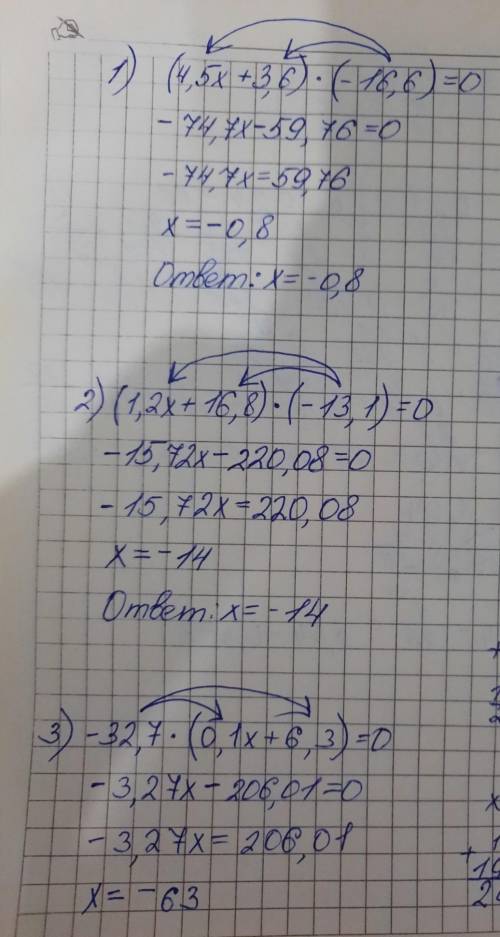 1) (4,5x+3,6)·(-16,6)=0
-74,7x-59,76=0
-74,7x=59,76
x=-0,8
Ответ: x=-0,8
2) (1,2x+16,8)·(-13,1)=0
-15,72x-220,08=0
-15,72x=220,08
x=-14
Ответ: x=-14
3) -32,7·(0,1x+6,3)=0
-3,27x-206,01=0
-3,27x=206,01
x=-63